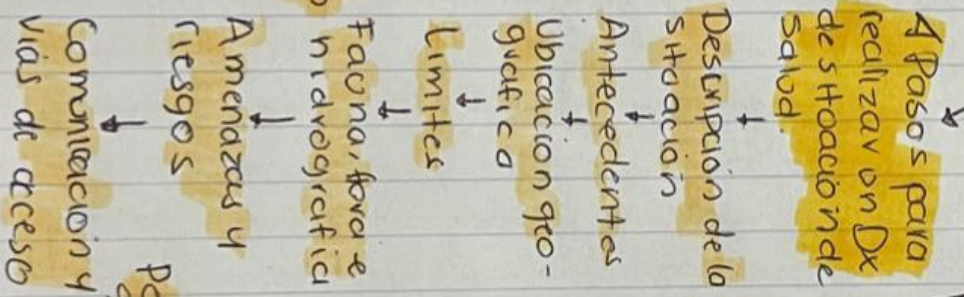 1 Pasos para
realizar un Dx
de situación de
Salud.
Descripción de la
situación
Antecedentes
Ubicacion geo-
grafica
Limites
Fauna, flora e
hidrografica
Amenazas y
riesgos
Comunicación y
vias de acceso